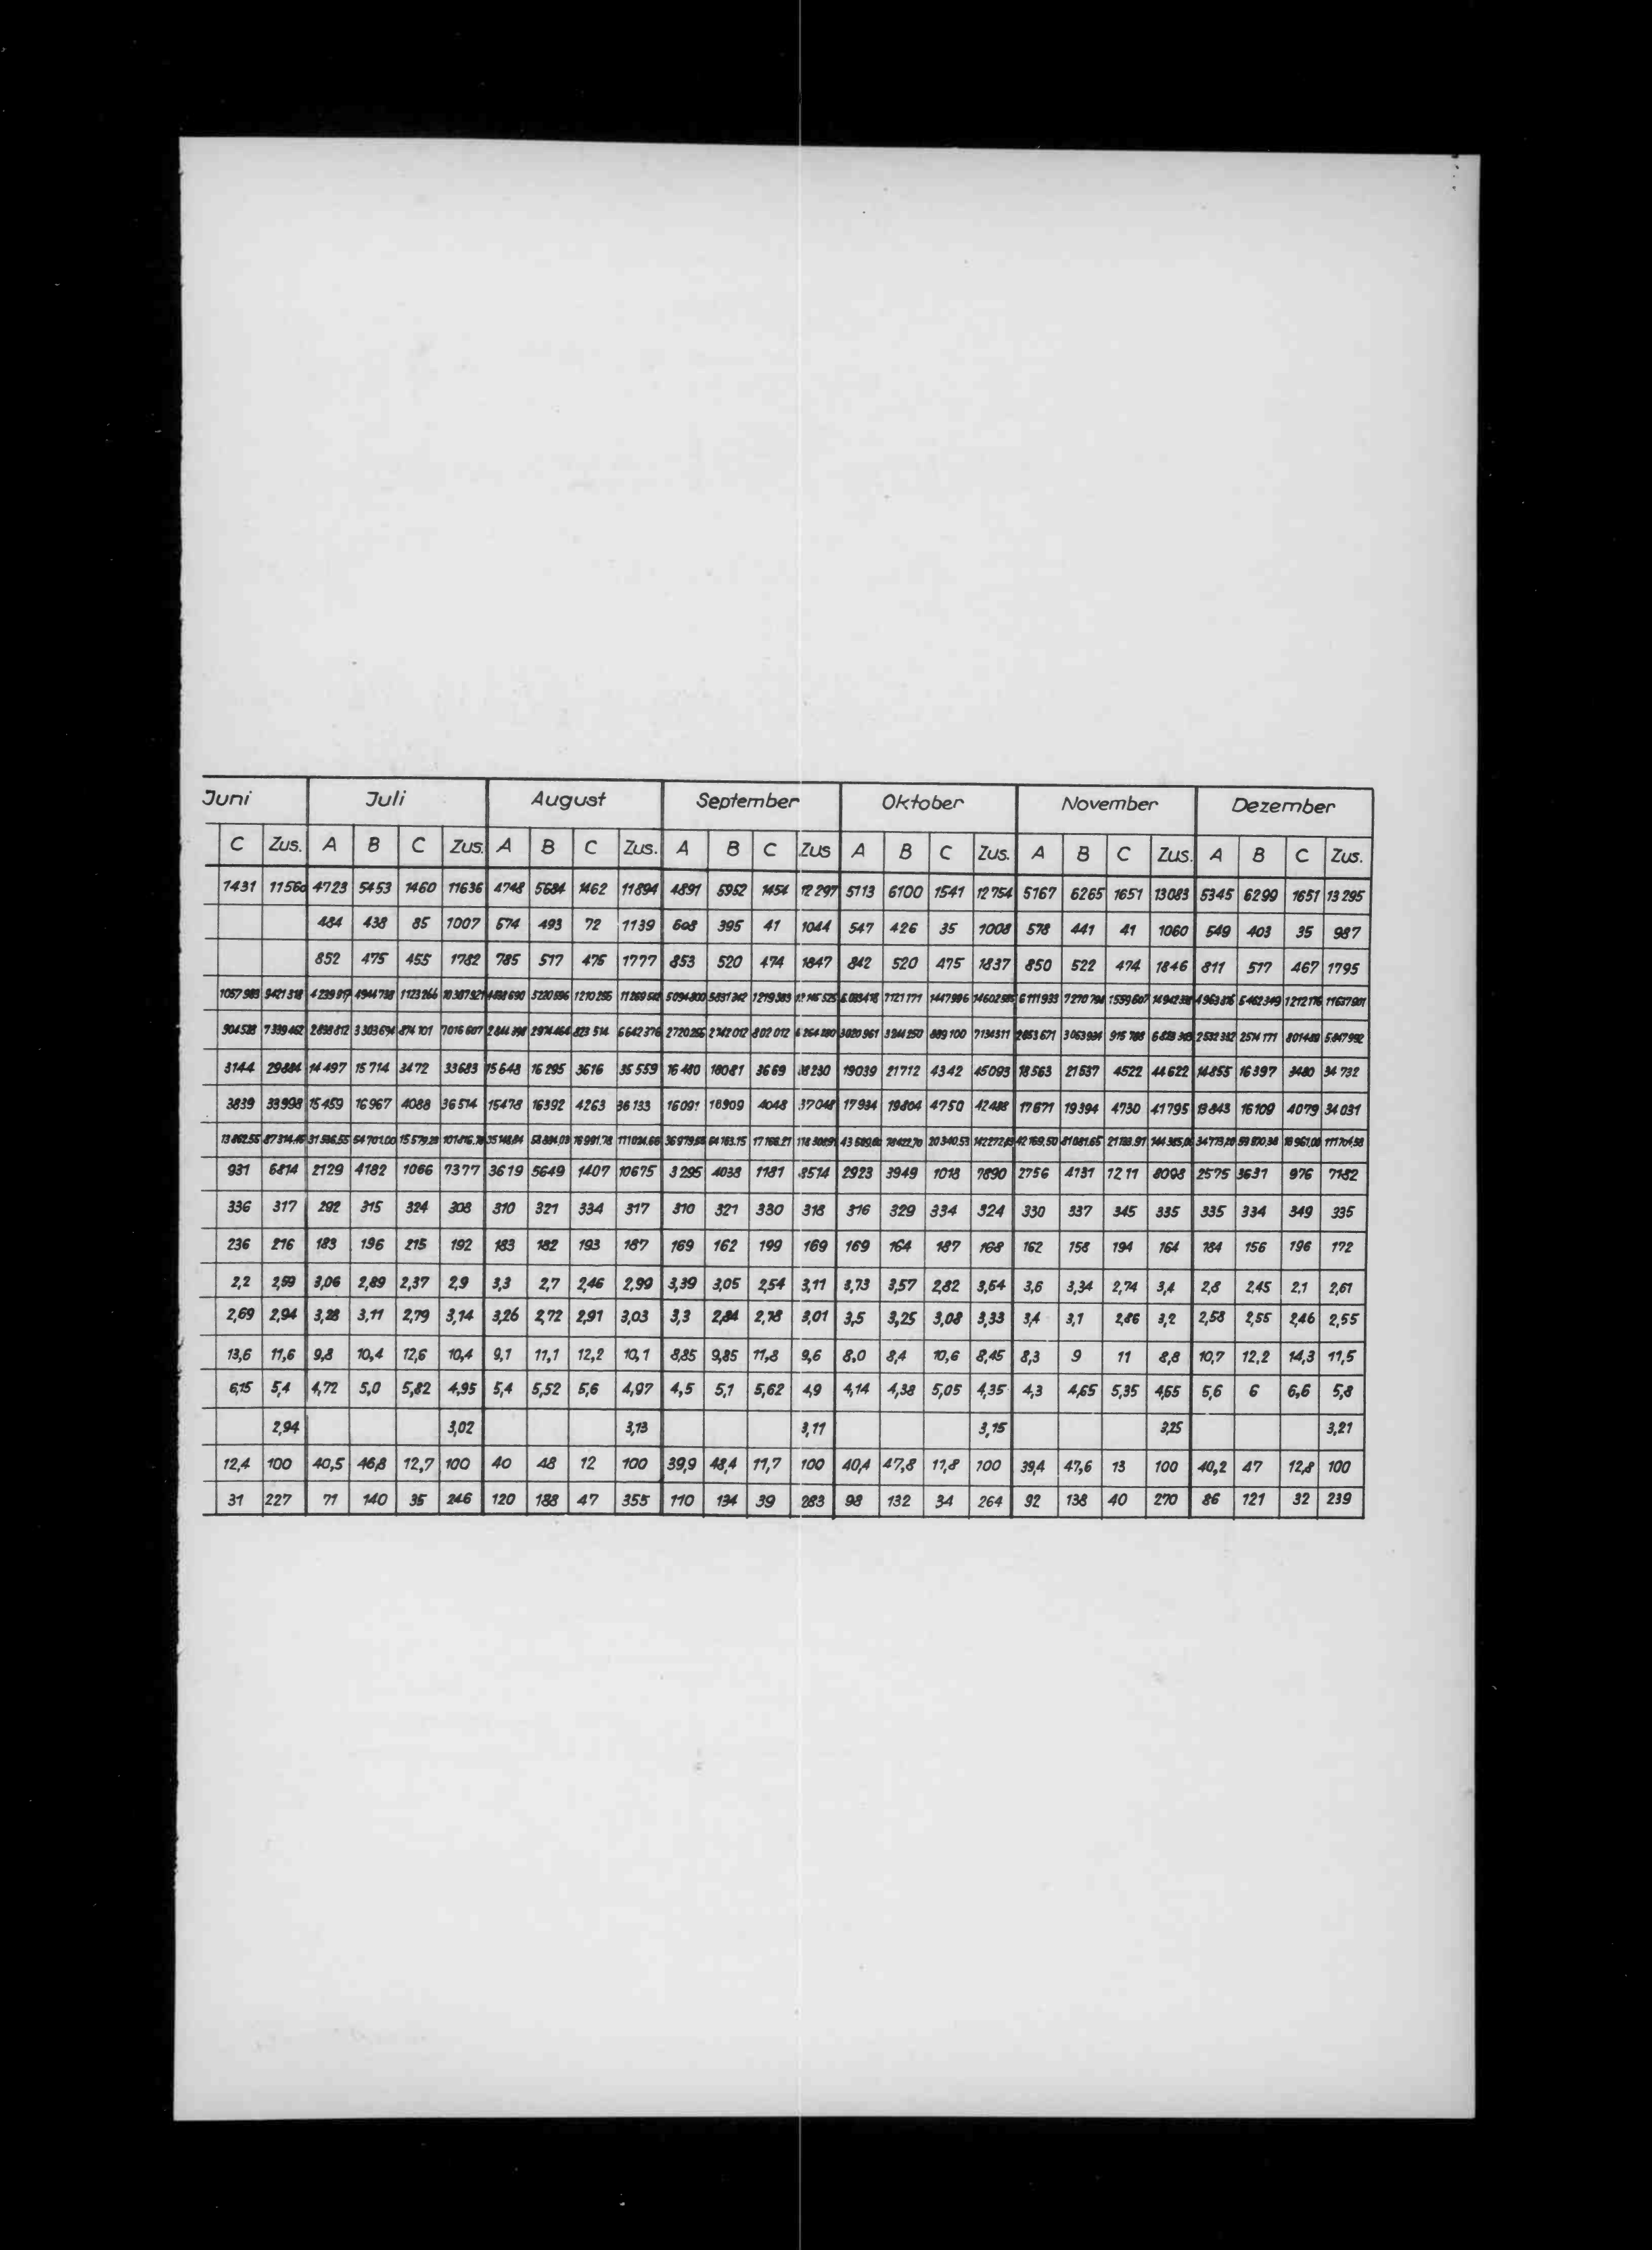 Juni Juli August September Oktober November Dezember
C Zus. A B C Zus. A B C Zus. A B C Zus A B C Zus. A B C Zus. A B C Zus.
1431 11560 4723 5453 1460 11636 4748 5684 1462 11894 4891 5952 1454 12297 5113 6100 1541 12754 5167 6265 1651 13083 5345 6299 1651 13295
484 438 85 1007 574 493 72 1139 608 395 41 1044 547 426 35 1008 578 441 41 1060 549 403 35 987
852 475 455 1782 785 517 475 1777 853 520 474 1847 842 520 475 1837 850 522 474 1846 811 517 467 1795
1057983 9421318 4944738 1123266 5220596 1210256 5094800 1219383 7121771 1447996 6111933 1212176
904528 7339462 2838812 3303694 874101 7016607 2974464 823514 6642376 2720256 2742012 802012 3020961 3244250 889100 7134311 2853671 3063994 915788 2574171 5847992
3144 29884 14497 15714 3472 33683 15648 16295 3616 35559 16480 18081 3669 38230 19039 21712 4342 45093 18563 21537 4522 44622 14855 16397 3480 34732
3839 33998 15459 16967 4088 36514 15478 16392 4263 36133 16091 16909 4048 37048 17934 19804 4750 42488 17671 19394 4730 41795 13843 16109 4079 34031
13862.55 54701.00 64163.15 17166.21 20340.53 42169,50
931 6814 2129 4182 1066 7377 3619 5649 1407 10675 3295 4038 1181 8514 2923 3949 1018 7890 2756 4131 1211 8098 2575 3631 976 7182
336 317 292 315 324 308 310 321 334 317 310 321 330 318 316 329 334 324 330 337 345 335 335 334 349 335
236 216 183 196 215 192 183 182 193 187 169 162 199 169 169 164 187 168 162 158 194 164 184 156 196 172
2,2 2,59 3,06 2,89 2,37 2,9 3,3 2,7 2,46 2,99 3,39 3,05 2,54 3,11 3,73 3,57 2,82 3,54 3,6 3,34 2,74 3,4 2,8 2,45 2,1 2,61
2,69 2,94 3,28 3,11 2,79 3,14 3,26 2,72 2,91 3,03 3,3 2,84 2,78 3,01 3,5 3,25 3,08 3,33 3,4 3,1 2,86 3,2 2,58 2,55 2,46 2,55
13,6 11,6 9,8 10,4 12,6 10,4 9,1 11,1 12,2 10,1 8,85 9,85 11,8 9,6 8,0 8,4 10,6 8,45 8,3 9 11 8,8 10,7 12,2 14,3 11,5
6,15 5,4 4,72 5,0 5,82 4,95 5,4 5,52 5,6 4,97 4,5 5,1 5,62 4,9 4,14 4,38 5,05 4,35 4,3 4,65 5,35 4,65 5,6 6 6,6 5,8
2,94 3,02 3,13 3,11 3,15 3,25 3,21
12,4 100 40,5 46,8 12,7 100 40 48 12 100 39,9 48,4 11,7 100 40,4 47,8 11,8 100 39,4 47,6 13 100 40,2 47 12,8 100
31 227 71 140 35 246 120 188 47 355 110 134 39 283 98 132 34 264 92 138 40 270 86 121 32 239